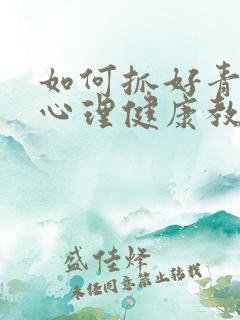 如何抓好青
心理健康教
盛佳烽
未经同意禁止转载